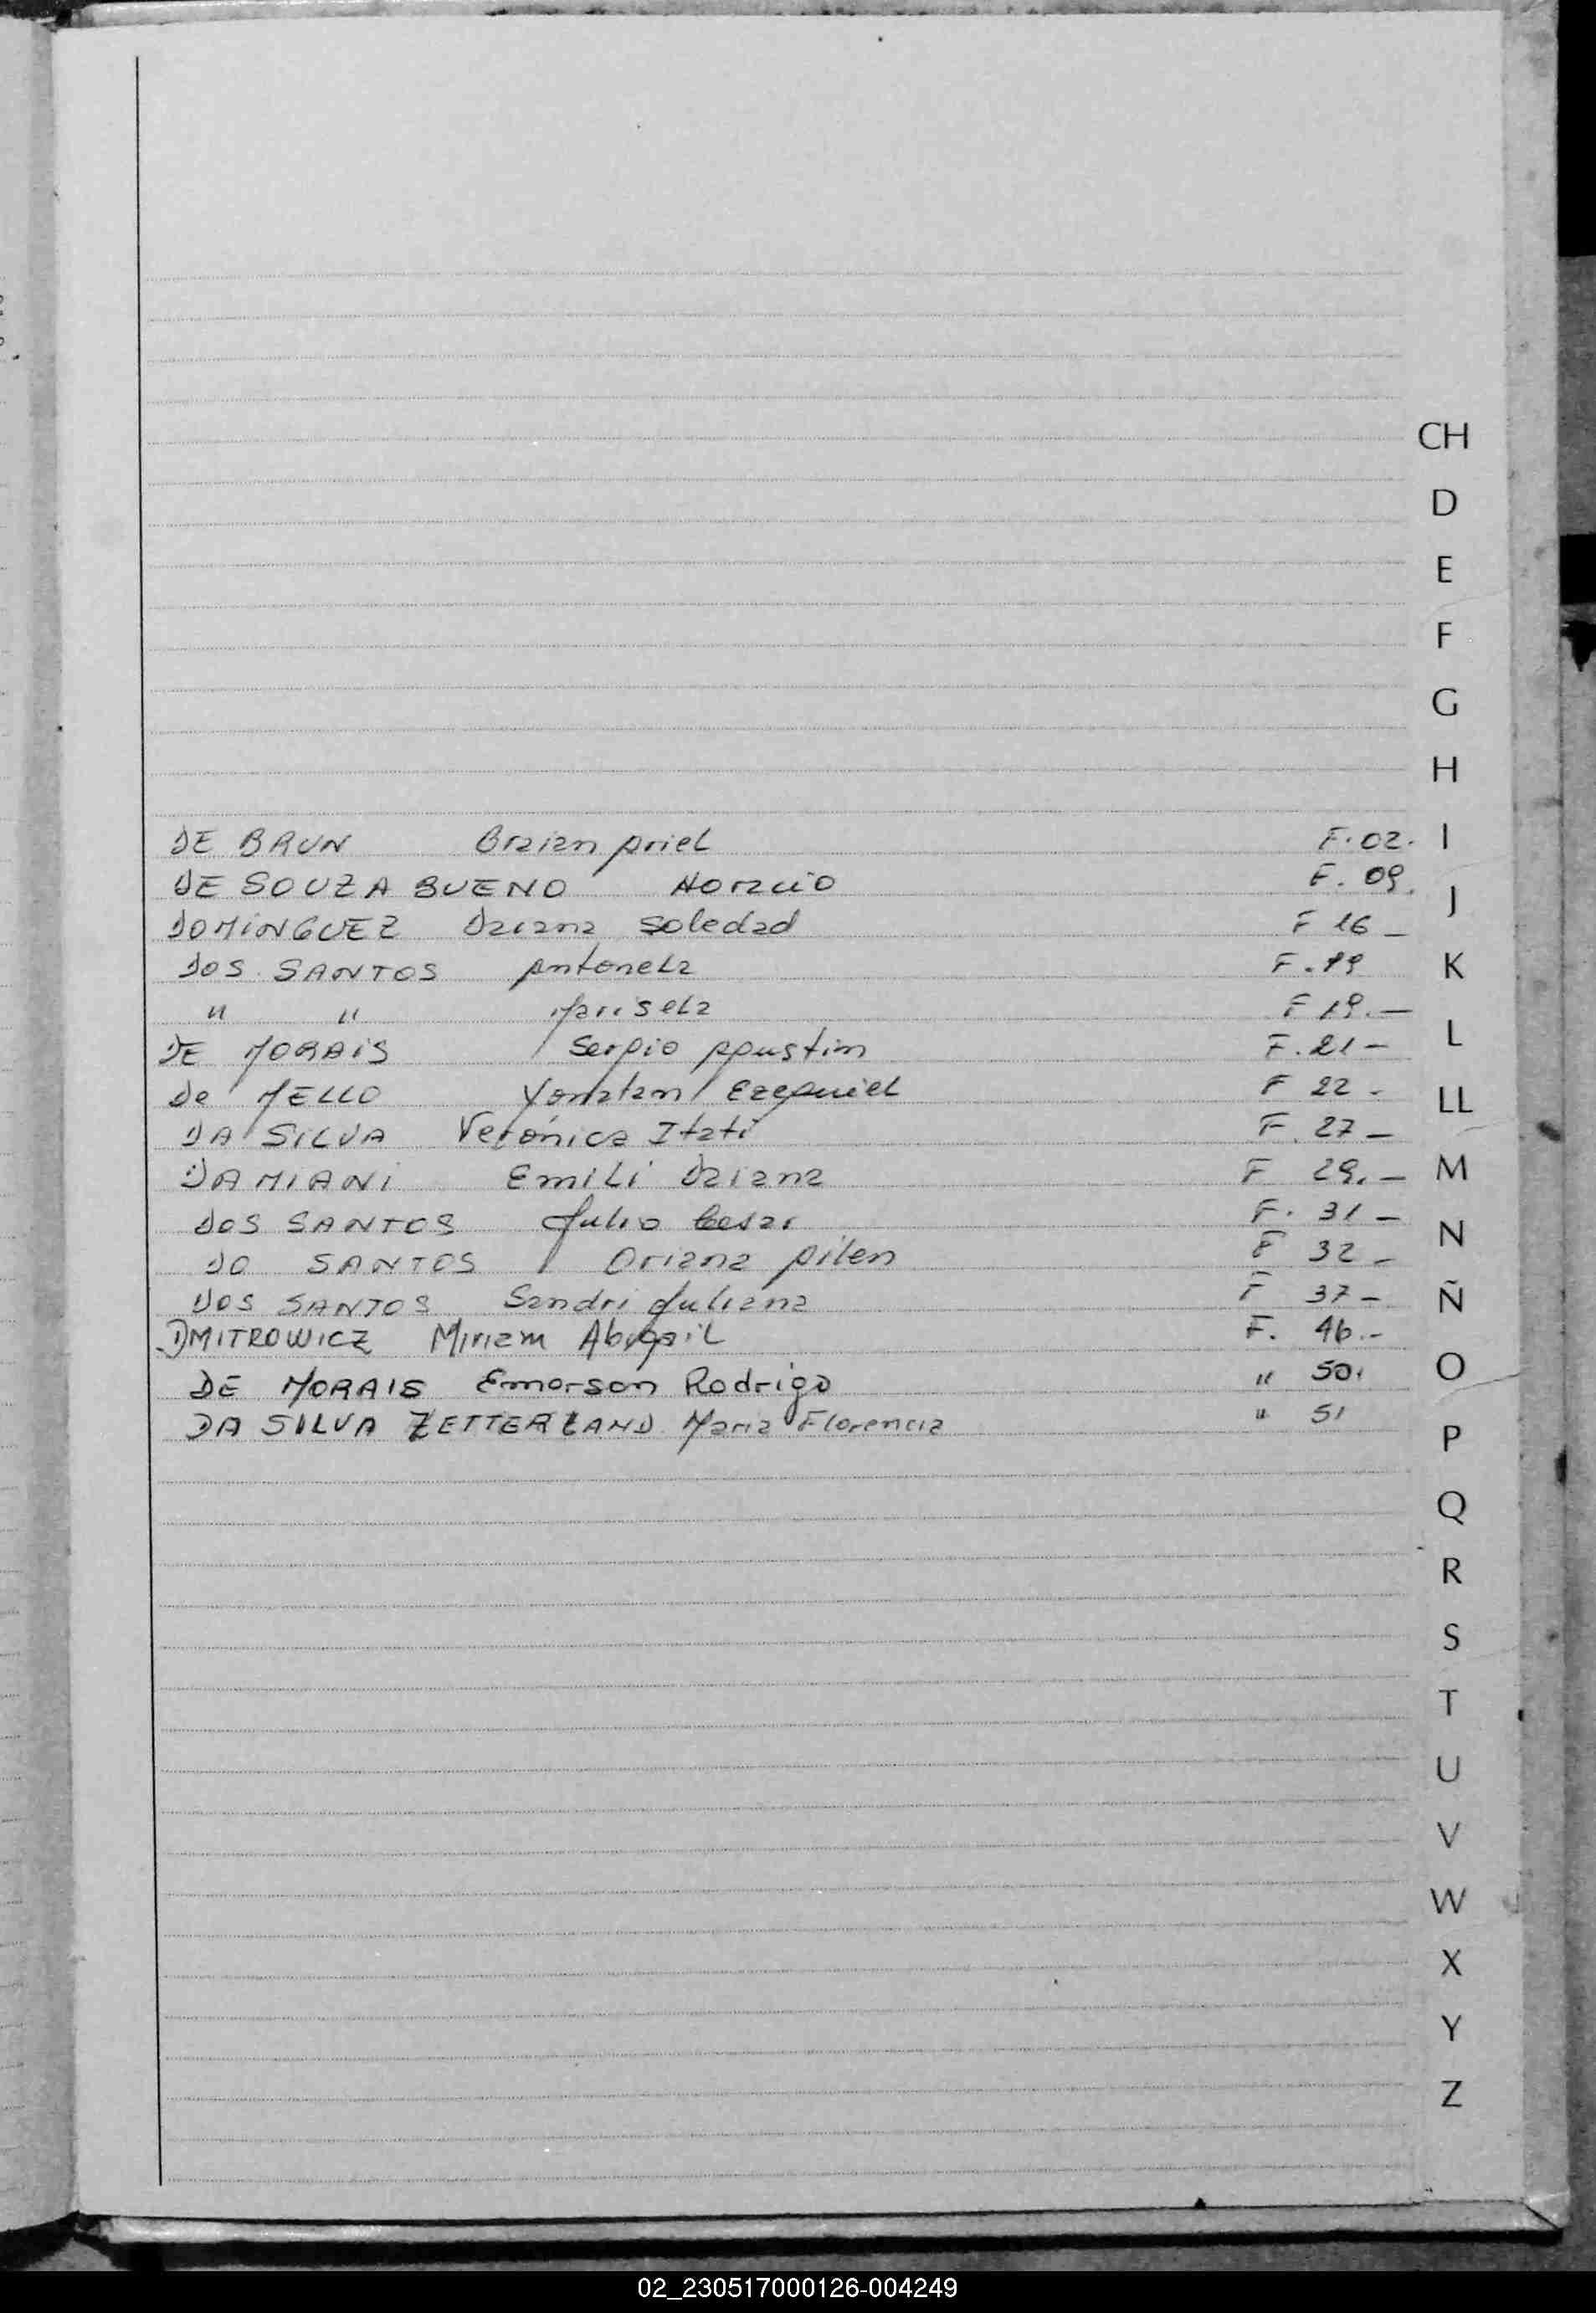 CH
D
E
F
G
H
DE BRUN Braian Ariel F. 02. I
DE SOUZA BUENO Horacio F. 09. J
DOMINGUEZ Daiana Soledad F 16 -
DOS SANTOS Antonela F. 19 K
" " Marisela F 19. -
DE MORAIS Sergio Agustin F. 21 - L
De MELLO Yonatan Ezequiel F 22 - LL
DA SILVA Verónica Itatí F. 27 -
DAMIANI Emili Daiana F 29. - M
DOS SANTOS Julio Cesar F. 31 -
DO SANTOS Oriana Ailen F 32 - N
DOS SANTOS Sandri Juliana F 37 - Ñ
DMITROWICZ Miriam Abigail F. 46. -
DE MORAIS Emerson Rodrigo " 50. O
DA SILVA ZETTERLAND Maria Florencia " 51
P
Q
R
S
T
U
V
W
X
Y
Z
02_230517000126-004249